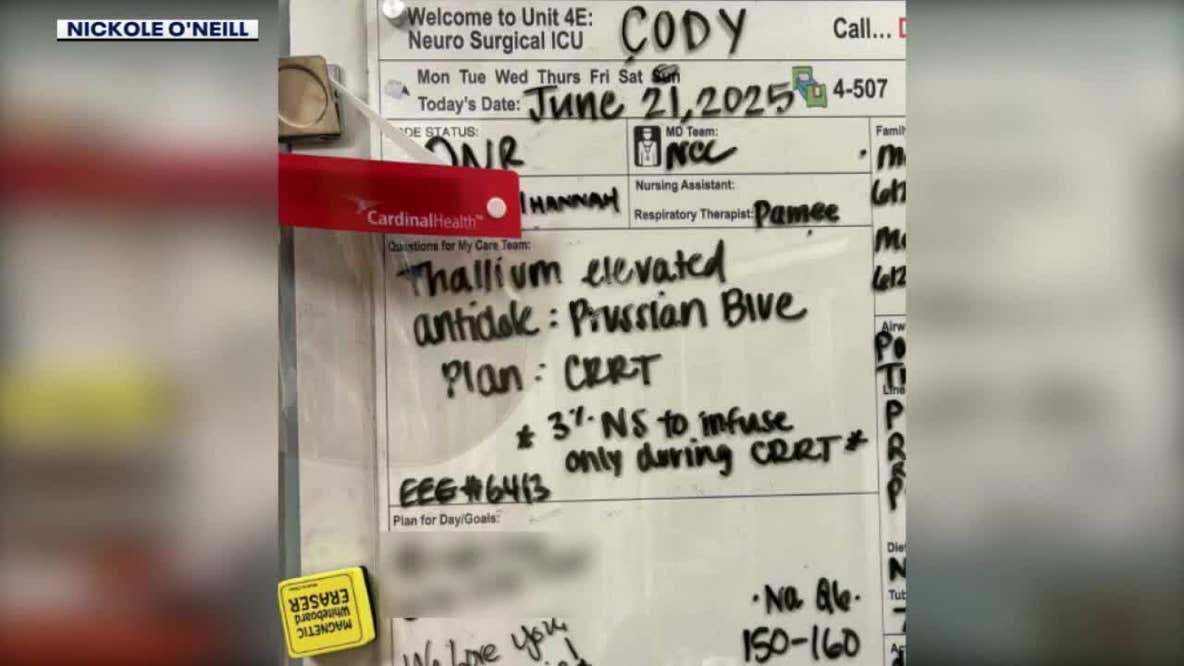 NICKOLE O'NEILL
Welcome to Unit 4E:
Neuro Surgical ICU
CODY
Call...
Mon Tue Wed Thurs Fri Sat Sun
Today's Date: June 21, 2025
4-507
DE STATUS:
DNR
MD Team:
NCC
HANNAH
Nursing Assistant:
Respiratory Therapist: Pamee
CardinalHealth™
Questions for My Care Team:
Thallium elevated
antidote: Prussian Blue
Plan: CRRT
* 3% NS to infuse
only during CRRT *
EEG #6413
Plan for Day/Goals:
· Na Q6 ·
150-160
We love you
MAGNETIC
Whiteboard
ERASER
Famil
M
612
M
612
Airw
Po
T
Line
P
R
R
P
Die
N
Tub